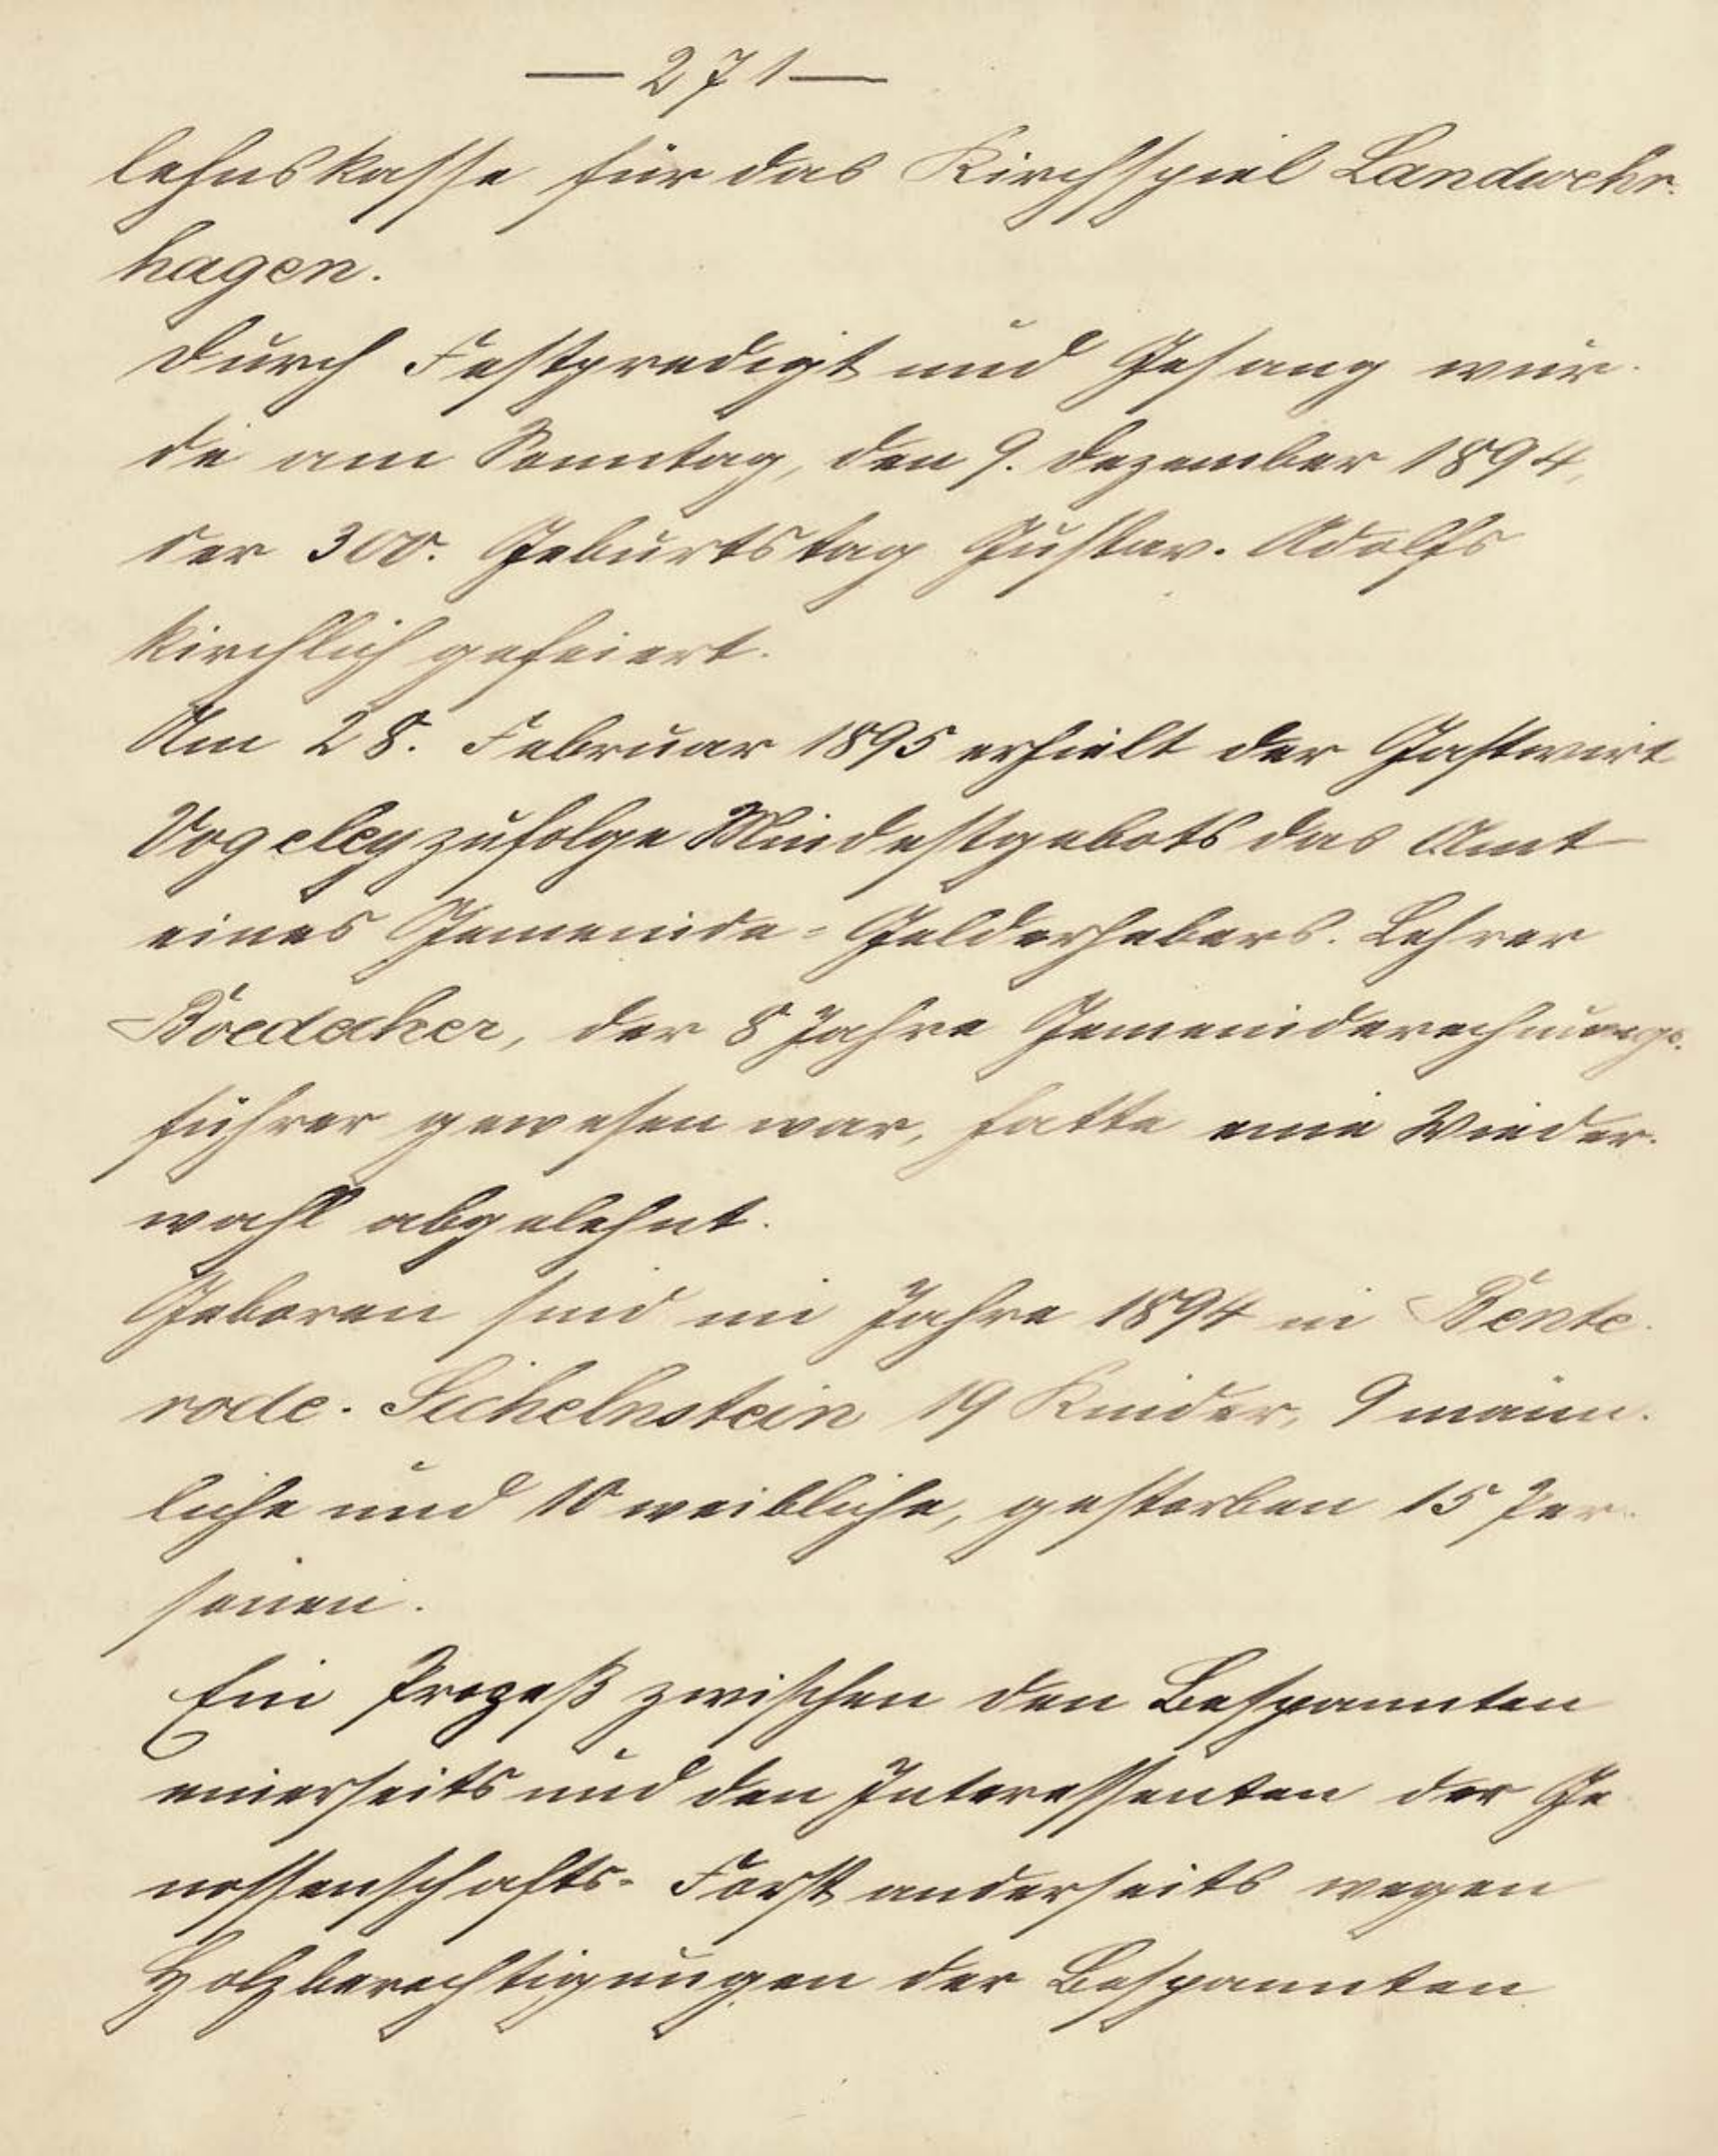 — 271 —
lehnskasse für das Kirchspiel Landwehr-
hagen.
Durch Festpredigt und Gesang wur-
de am Sonntag, den 9. Dezember 1894,
der 300. Geburtstag Gustav-Adolfs
kirchlich gefeiert.
Am 28. Februar 1895 erhielt der Gastwirt
Vogeley zufolge Mindestgebots das Amt
eines Gemeinde-Gelderhebers. Lehrer
Boedecker, der 8 Jahre Gemeinderechnungs-
führer gewesen war, hatte eine Wieder-
wahl abgelehnt.
Geboren sind im Jahre 1894 in Bente-
rode-Sichelnstein 19 Kinder, 9 männ-
liche und 10 weibliche, gestorben 15 Per-
sonen.
Ein Prozeß zwischen den Bespannten
einerseits und den Interessenten der Ge-
nossenschafts-Forst anderseits wegen
Holzberechtigungen der Bespannten